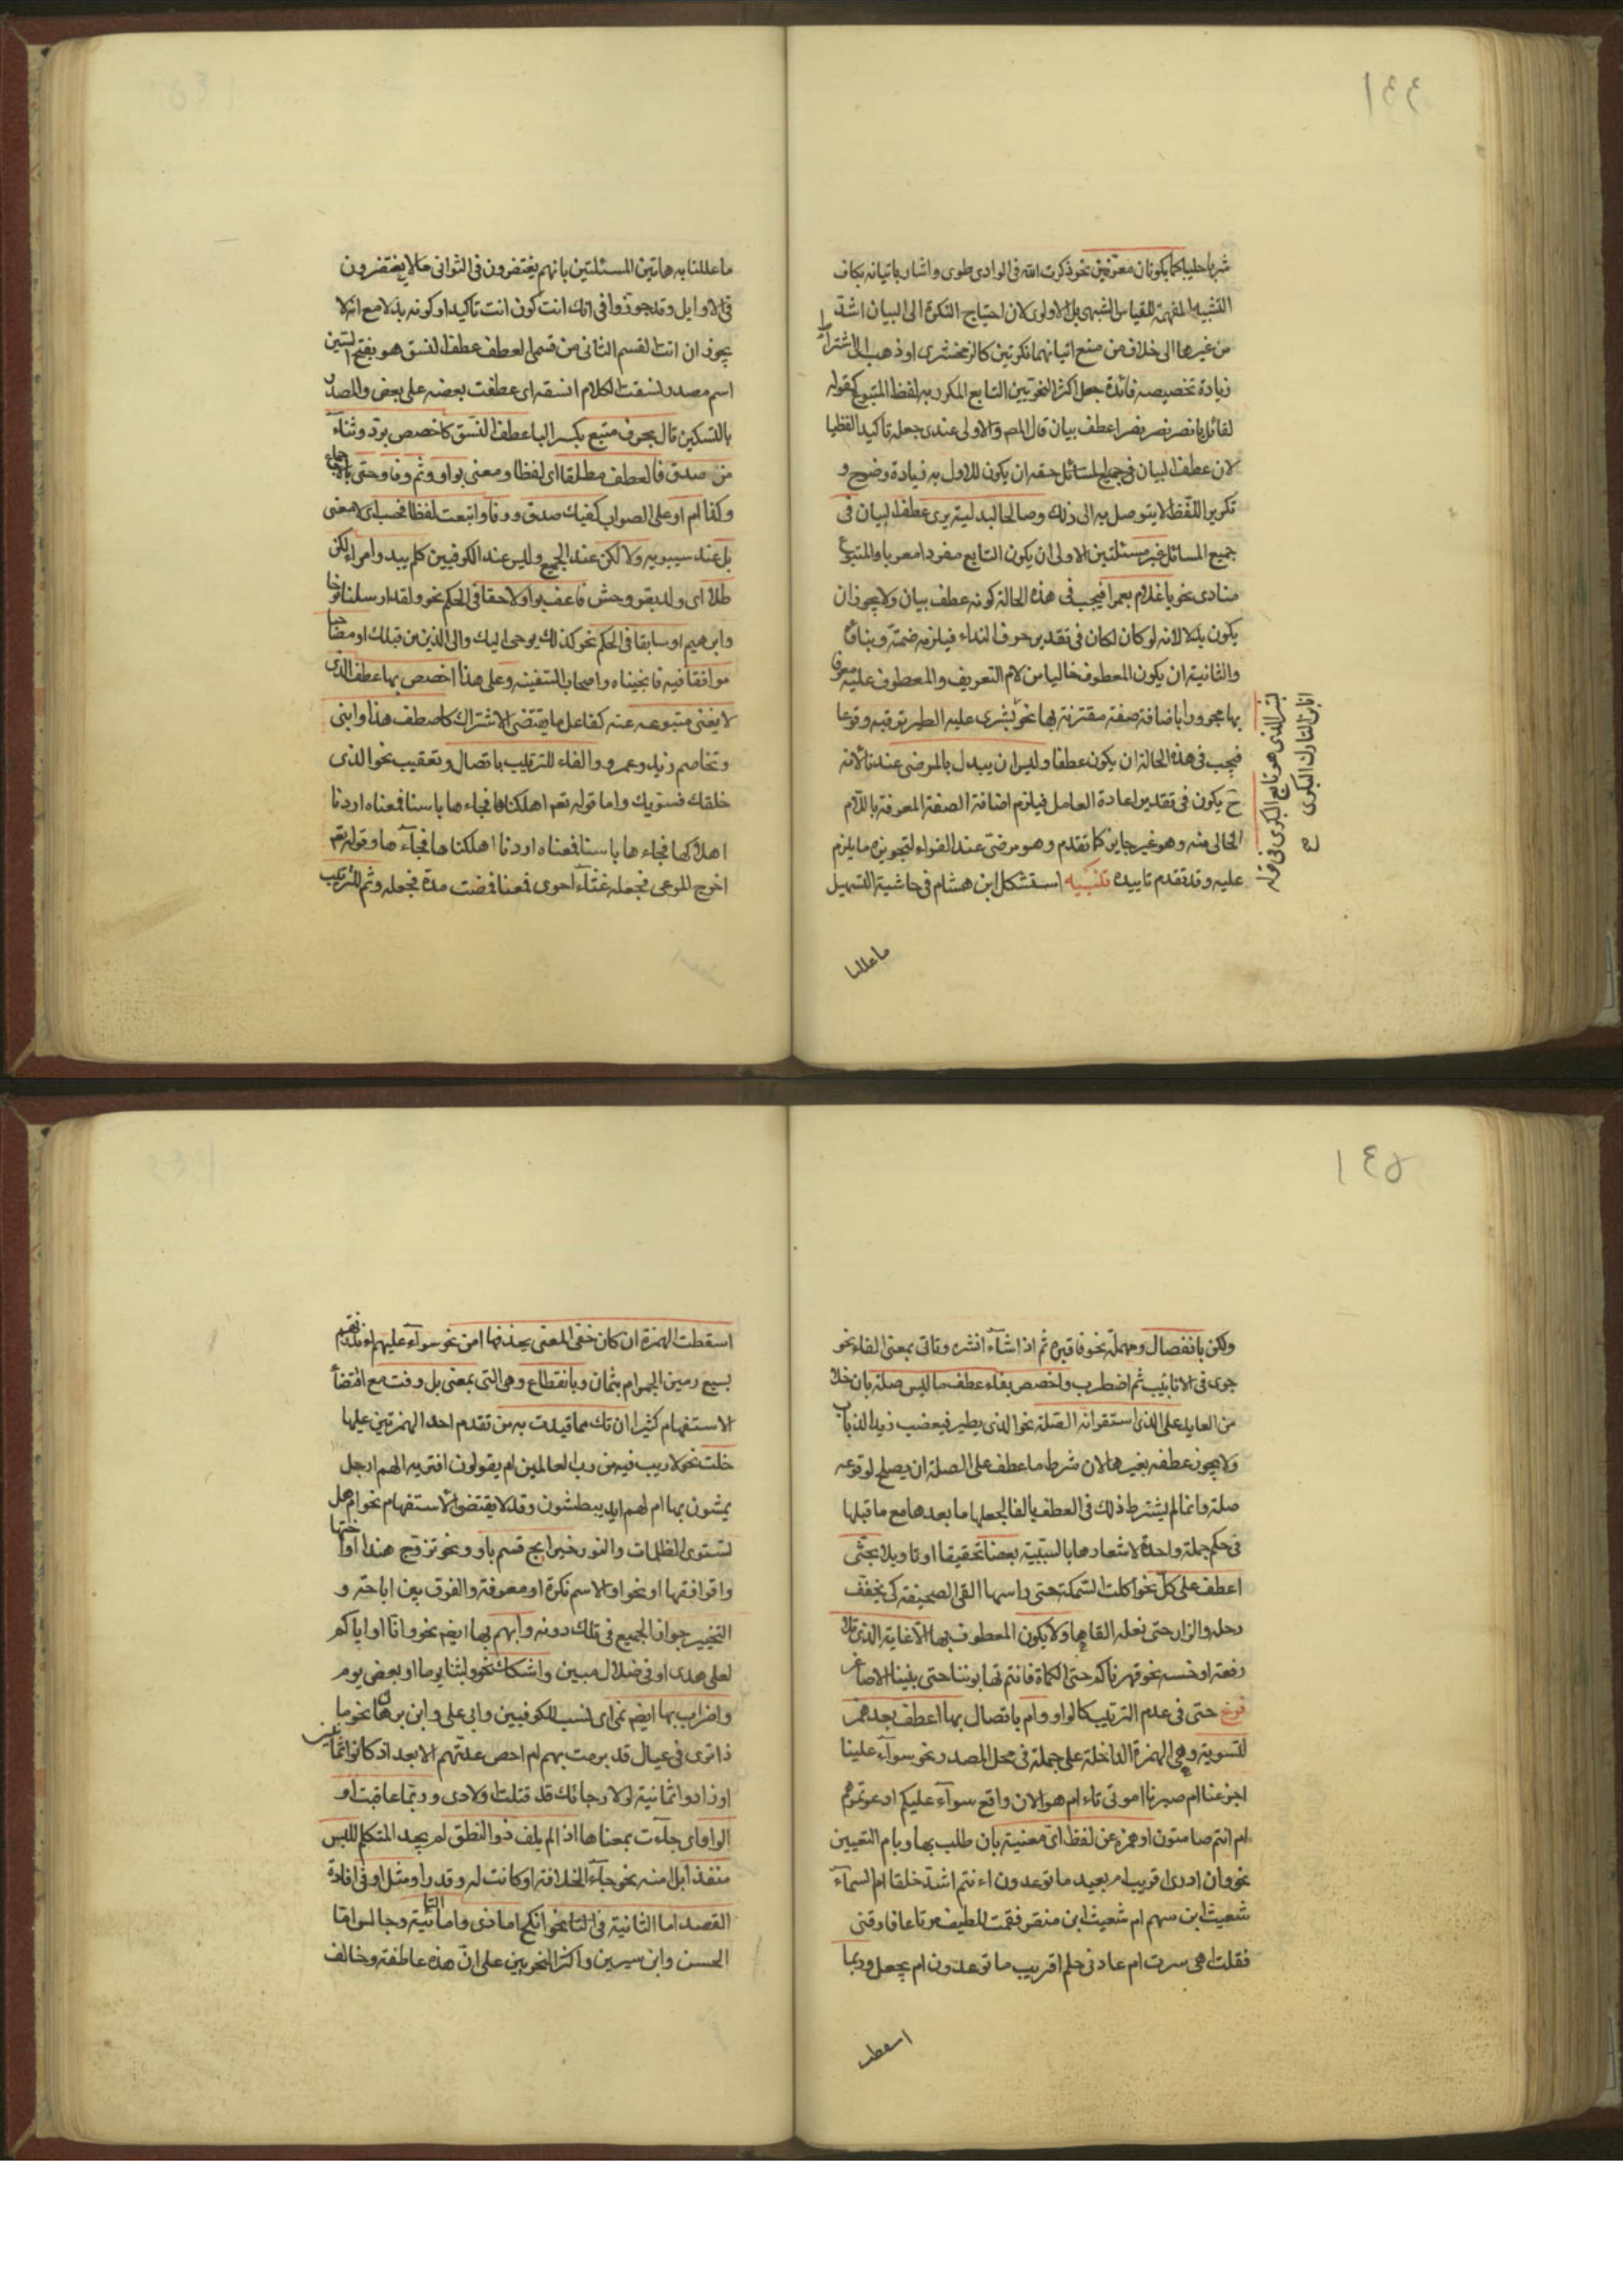 ١٤٤
شربا حليبا كما يكونان معرفين نحو ذكرت الله فى الوادى طوى واشار باتيانه بكاف
التشبيه المفهمة للقياس الشبهى بل الاولوى لان احتياج النكرة الى البيان اشد
من غيرها الى خلاف من منع اتيانهما نكرتين كالزمخشرى او ذهب الى اشتراط
زيادة تخصيصه فائدة جعل اكثر النحويين التابع المكرر به لفظ المتبوع كقوله
لقائل يا نصر نصر نصرا عطف بيان قال المص والاولى عندى جعله تاكيدا لفظيا
لان عطف البيان فى جميع المسائل حقه ان يكون للاول به زيادة وضوح و
تكرير اللفظ لا يتوصل به الى ذلك وصالحا لبدلية يرى عطف البيان فى
جميع المسائل غير مسئلتين الاولى ان يكون التابع مفردا معربا والمتبوع
منادى نحو يا غلام يعمرا فيجب فى هذه الحالة كونه عطف بيان ولا يجوز ان
يكون بدلا لانه لو كان لكان فى تقدير حرف النداء فيلزم ضمه وبناؤه
والثانية ان يكون المعطوف خاليا من لام التعريف والمعطوف عليه معرف
بها مجرورا باضافة صفة مقترنة بها نحو بشرى عليه الطير ترقبه وقوعا
فيجب فى هذه الحالة ان يكون عطفا وليس ان يبدل بالمرضى عندنا لانه
ح يكون فى تقدير اعادة العامل فيلزم اضافة الصفة المعرفة باللام
الخالى منه وهو غير جايز كما تقدم وهو مرضى عند الفراء لتجويزه ما يلزم
عليه وقد تقدم تاييده تنبيه استشكل ابن هشام فى حاشية التسهيل
بشر الذى هو تابع البكرى فى قوله
انا ابن التارك البكرى
ما عللنا
ما عللنا به هاتين المسئلتين بانهم يغتفرون فى الثوانى ما لا يغتفرون
فى الاوايل وقد جوزوا فى انك انت كون انت تاكيدا وكونه بدلا مع انه لا
يجوز ان انت القسم الثانى من قسمى العطف عطف النسق هو بفتح السين
اسم مصدر نسقت الكلام انسقه اى عطفت بعضه على بعض والمصدر
بالتسكين تال بحرف متبع بكسر البا عطف النسق كاخصص بود وثناء
من صدق فالعطف مطلقا اى لفظا ومعنى بواو وثم وفا وحتى بالاجماع
وكذا ام او على الصواب كفيك صدق ووفا واتبعت لفظا فحسب اى لا معنى
بل عند سيبويه ولا لكن عند الجميع وليس عند الكوفيين كلم يبد وامرء لكن
طلا اى ولد بقر وحش فاعطف بواو لاحقا فى الحكم نحو ولقد ارسلنا نوحا
وابرهيم او سابقا فى الحكم نحو كذلك يوحى اليك والى الذين من قبلك او مصاحبا
موافقا فيه فانجيناه واصحاب السفينه وعلى هذا اخصص بها عطف الذى
لا يغنى متبوعه عنه كفاعل ما يقتضى الاشتراك كاصطف هذا وابنى
وتخاصم زيد وعمرو والفاء للترتيب باتصال وتعقيب نحو الذى
خلقك فسويك واما قوله تعم اهلكناها فجاءها باسنا فمعناه اردنا
اهلاكها فجاءها باسنا فمعناه اردنا اهلكناها فجاءها وقوله تعم
اخرج المرعى فجعله غثآء احوى فمعناه فمضت مدة فجعله وثم للترتيب
١٤٥
ولكن بانفصال ومهملة نحو فاقبره ثم اذا شآء انشره وتاتى بمعنى الفاء نحو
جرى فى الانابيب ثم اضطرب واخصص بفاء عطف ما ليس صلة بان خلا
من العايد على الذى استقر انه الصلة نحو الذى يطير فيغضب زيد الذباب
ولا يجوز عطفه بغيرها لان شرط ما عطف على الصلة ان يصلح لوقوعه
صلة وانما لم يشترط ذلك فى العطف بالفا لجعلها ما بعدها مع ما قبلها
فى حكم جملة واحدة لاشعارها بالسببية بعضا تحقيقا او تاويلا بحتى
اعطف على كل نحو اكلت السمكة حتى راسها القى الصحيفة كى يخفف
رحله والزاد حتى نعله القاها ولا يكون المعطوف بها الا غاية الذى تلا
رفعة او خسه نحو قهرناكم حتى الكماة فانتم تهابوننا حتى بنينا الاصاغر
فرع حتى فى عدم الترتيب كالواو وام باتصال بها اعطف بعد همز
للتسوية وهى الهمزة الداخلة على جملة فى محل المصدر نحو سوآء علينا
اجزعنا ام صبرنا اموتى ناء ام هو الان واقع سوآء عليكم ادعوتموهم
ام انتم صامتون او همزة عن لفظ اى مغنية بان طلب بها وبام التعيين
نحو وان ادرى اقريب ام بعيد ما توعدون اءنتم اشد خلقا ام السمآء
شعيث ابن سهم ام شعيث ابن منقر فقمت للطيف مرتاعا فارقنى
فقلت اهى سرت ام عادنى حلم اقريب ما توعدون ام يجعل وربما
اسقطت
اسقطت الهمزة ان كان خفى المعنى بحذفها امن نحو سوآء عليهم انذرتهم
بسبع رمين الجمر ام بثمان وبانقطاع وهى التى بمعنى بل وفت مع اقتضاء
الاستفهام كثيرا ان تك مما قيدت به من تقدم احد الهمزتين عليها
خلت نحو لا ريب فيه من رب العالمين ام يقولون افتريه الهم ارجل
يمشون بها ام لهم ايد يبطشون وقد لا يقتضى الاستفهام نحو ام هل
تستوى الظلمات والنور خير ابح قسم باو ونحو تزوج هندا او اختها
واقرا فقها او نحوا والاسم نكرة او معرفة والفرق بين اباحة و
التخيير جواز الجميع فى تلك دونه وابهم بها ايضم نحو وانا او اياكم
لعلى هدى او فى ضلال مبين واشكك نحو لبثنا يوما او بعض يوم
واضراب بها ايضم نمى اى نسب للكوفيين وابى على وابن برهان نحو ما
ذا ترى فى عيال قد برمت بهم لم احص عدتهم الا بعداد كانوا ثمانين
او زادوا ثمانية لولا رجائك قد قتلت اولادى وربما عاقبت او
الواو اى جآءت بمعناها اذا لم يلف ذو النطق لم يجد المتكلم للبس
منفذا بل امنه نحو جآء الخلافة او كانت له قدرا ومثل او فى افادة
القصد اما الثانية فى نحو انكح اما ذى واما النائية وجالس اما
الحسن وابن سيرين واكثر النحويين على ان هذه عاطفة وخالف